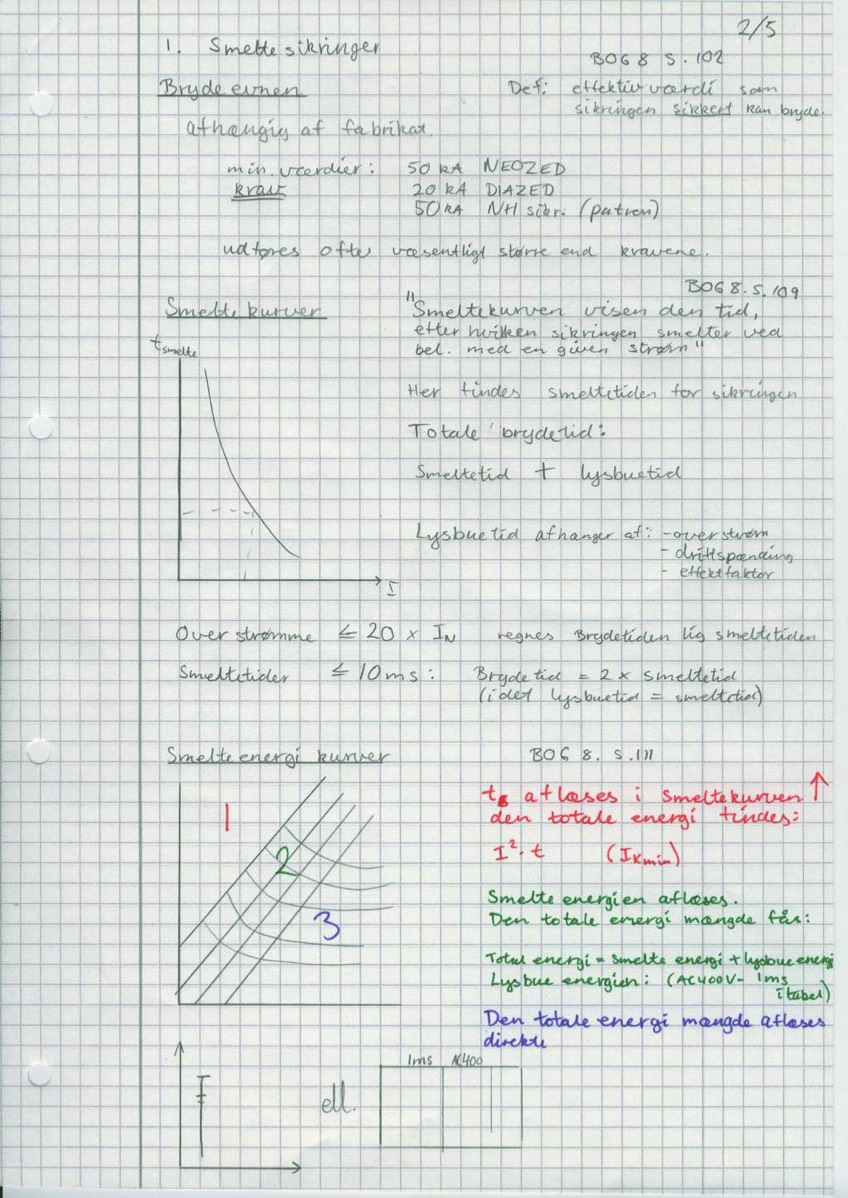 2/5
1. Smelte sikringer
BOG 8 S. 102
Bryde evnen
Def: effektiv værdi som
sikringen sikkert kan bryde.
afhængig af fabrikat.
min. værdier: 50 kA NEOZED
krav 20 kA DIAZED
50 kA NH sikr. (patron)
udføres ofte væsentligt større end kravene.
BOG 8. S. 109
Smelte kurver
"Smeltekurven visen den tid,
efter hvilken sikringen smelter ved
bel. med en given strøm"
t smelte
Her findes smeltetiden for sikringen
Totale brydetid:
Smeltetid + lysbuetid
Lysbuetid afhanger af: - overstrøm
- driftspænding
- effektfaktor
I
Over strømme ≤ 20 × IN regnes Brydetiden lig smeltetiden
Smeltetider ≤ 10 ms: Bryde tid = 2 × smeltetid
(idet lysbuetid = smeltetid)
Smelte energi kurver
BOG 8. S. 111
1
2
3
t afløses i smeltekurven ↑
den totale energi findes:
I²·t (IKmin)
Smelte energien aflæses.
Den totale energi mængde fås:
Total energi = smelte energi + lysbue energi
Lysbue energien: (AC400V - 1ms
i tabel)
Den totale energi mængde aflæses
direkte
ell.
1ms AC400